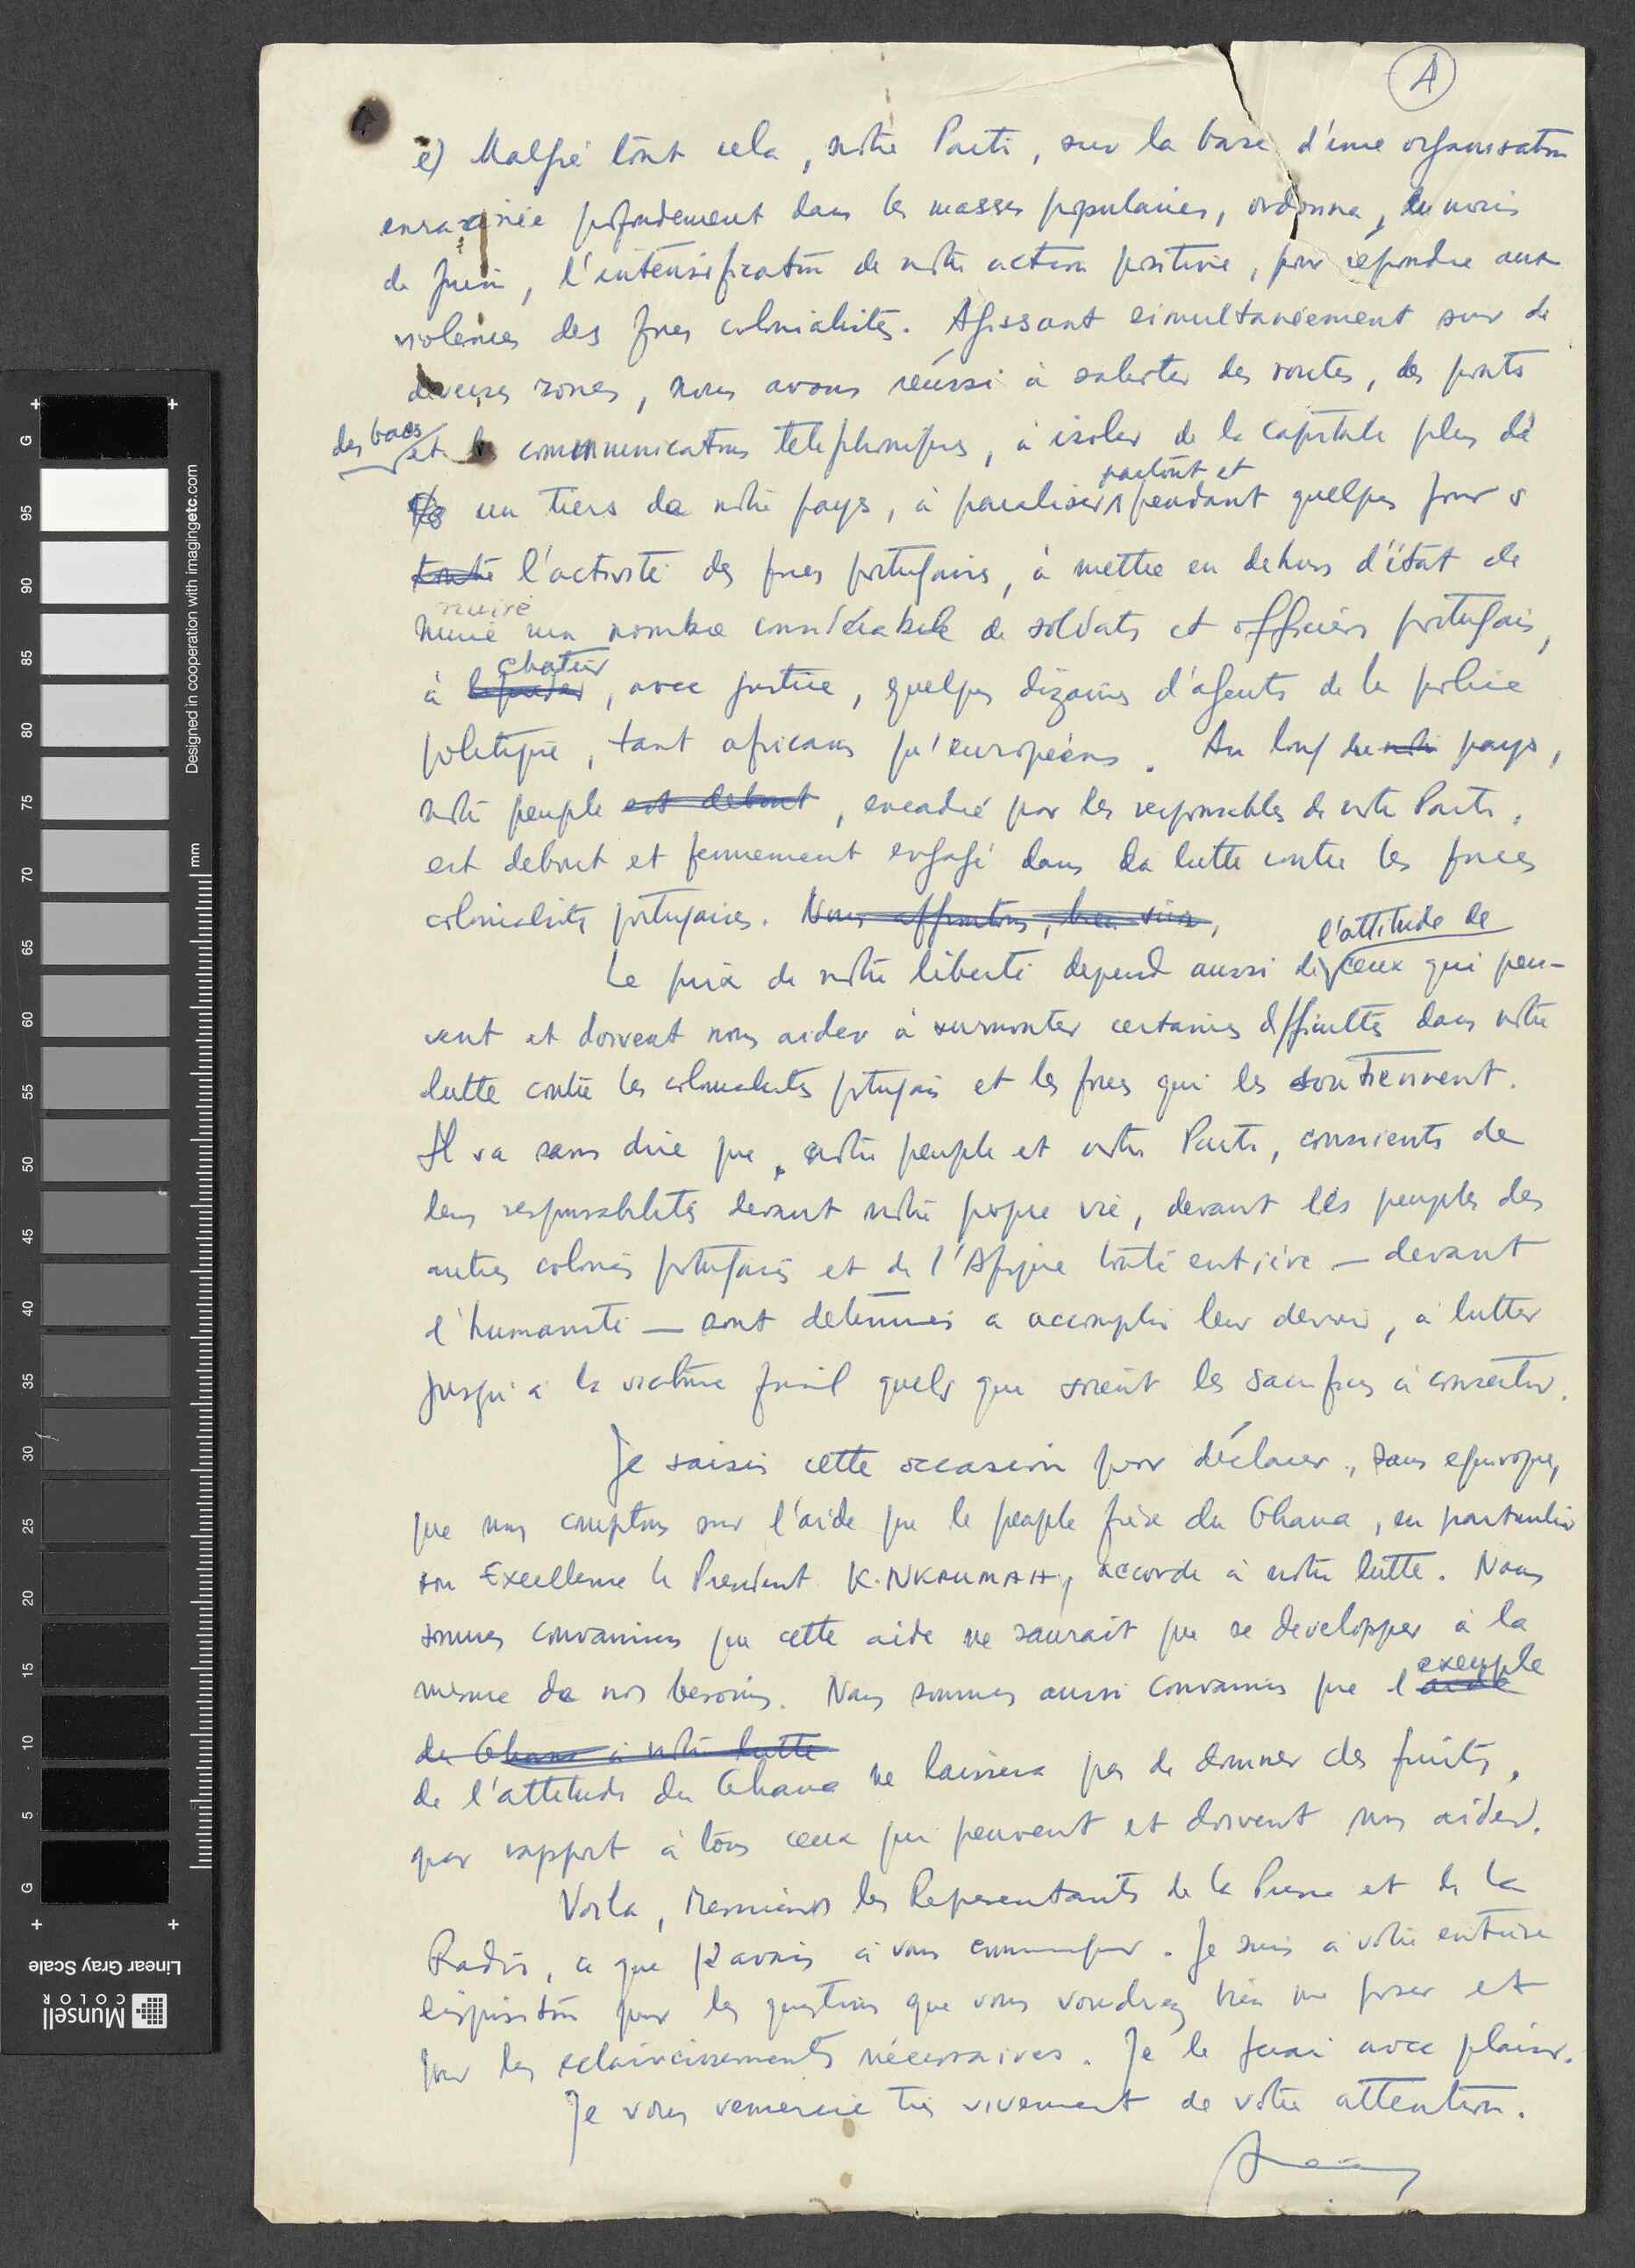 A
e) Malgré tout cela, notre Parti, sur la base d'une organisation
enracinée profondement dans les masses populaires, ordonna, du mois
de Juin, l'intensification de notre action positive, pour répondre aux
violences des forces colonialistes. Agissant simultanéement sur de
diverses zones, nous avons réussi à saboter des routes, des ponts
des bacs et les communications telephoniques, à isoler de la capitale plus de
un tiers de notre pays, à paraliser partout et pendant quelques jours
toute l'activité des forces portugaises, à mettre en dehors d'état de
nuire
nuire un nombre considérable de soldats et officiers portugais,
chatier
à liquider, avec justice, quelques dizaines d'agents de la police
politique, tant africains qu'européens. Au long du notre pays,
notre peuple est debout, encadré par les responsables de notre Parti,
est debout et fermement engagé dans la lutte contre les forces
colonialistes portugaises. Nous affrontons, bien sûr,
l'attitude de
Le prix de notre liberté depend aussi de ceux qui peu-
vent et doivent nous aider à surmonter certaines difficultés dans notre
lutte contre les colonialistes portugais et les forces qui les soutiennent.
Il va sans dire que, notre peuple et notre Parti, conscients de
leurs responsabilités devant notre propre vie, devant les peuples des
autres colonies portugaises et de l'Afrique toute entière — devant
l'humanité — sont determinés a accomplir leur devoir, a lutter
jusqu'a la victoire final quels que soient les sacrifices à consentir.
Je saisis cette occasion pour déclarer, sans equivoque,
que nous comptons sur l'aide que le peuple frère du Ghana, en particulier
son Excellence le President K. NKRUMAH, accorde à notre lutte. Nous
sommes convaincus que cette aide ne saurait que se developper à la
mesure de nos besoins. Nous sommes aussi convaincus que l'aide
exemple
du Ghana à notre lutte
de l'attitude du Ghana ne laissera pas de donner des fruits,
par rapport à tous ceux qui peuvent et doivent nous aider.
Voila, Messieurs les Representants de la Presse et de la
Radio, ce que j'avais à vous communiquer. Je suis à votre entière
disposition pour les questions que vous voudrez bien me poser et
pour les eclaircissements nécessaires. Je le ferai avec plaisir.
Je vous remercie très vivement de votre attention.
G
95
90
85
80
75
70
65
60
55
50
45
40
35
30
25
20
15
10
5
G
mm
Designed in cooperation with imagingetc.com
Linear Gray Scale
Munsell
COLOR